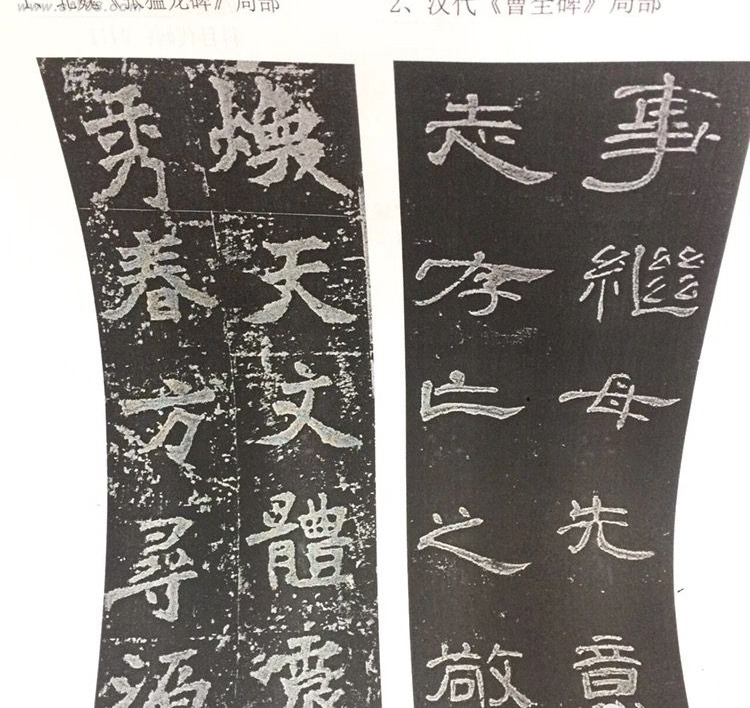 1、北魏《张猛龙碑》局部
2、汉代《曹全碑》局部
煥天文體震
秀春方尋源
事繼母先意
志存亡之敬